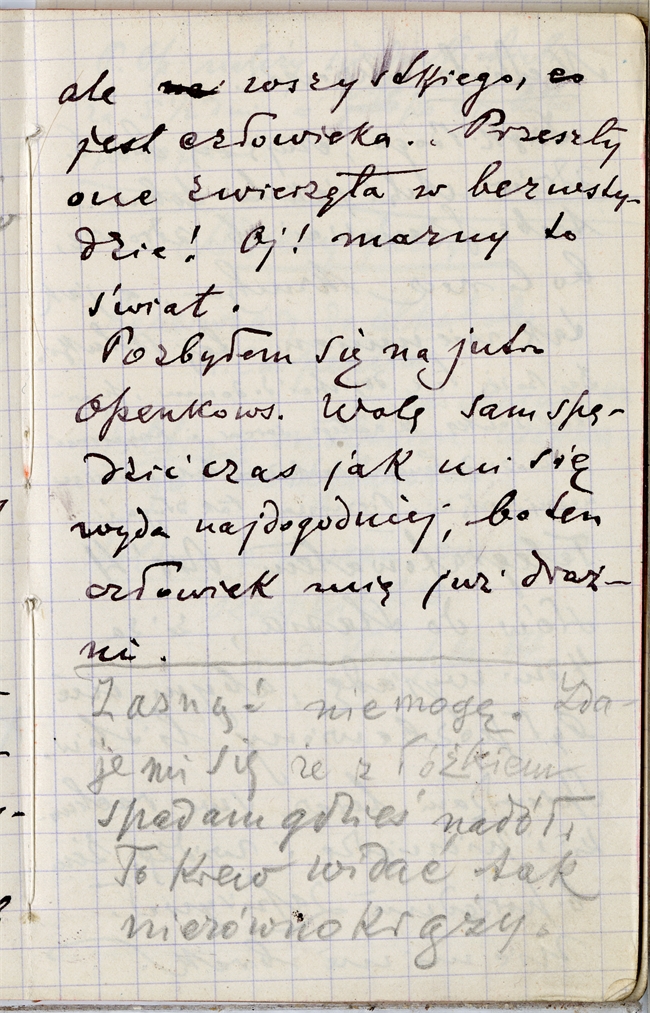 ale wszystkiego, co
jest człowieka.. Przeszły
one zwierzęta w bezwsty-
dzie! Oj! marny to
świat.
Pozbyłem się na jutro
Openkows. Wolę sam spę-
dzić czas jak mi się
wyda najdogodniej, bo ten
człowiek mię już draż-
ni.
Zasnąć nie mogę. Zda-
je mi się że z łóżkiem
spadam gdzieś nadół.
To Krew widać tak
nierówno krąży.